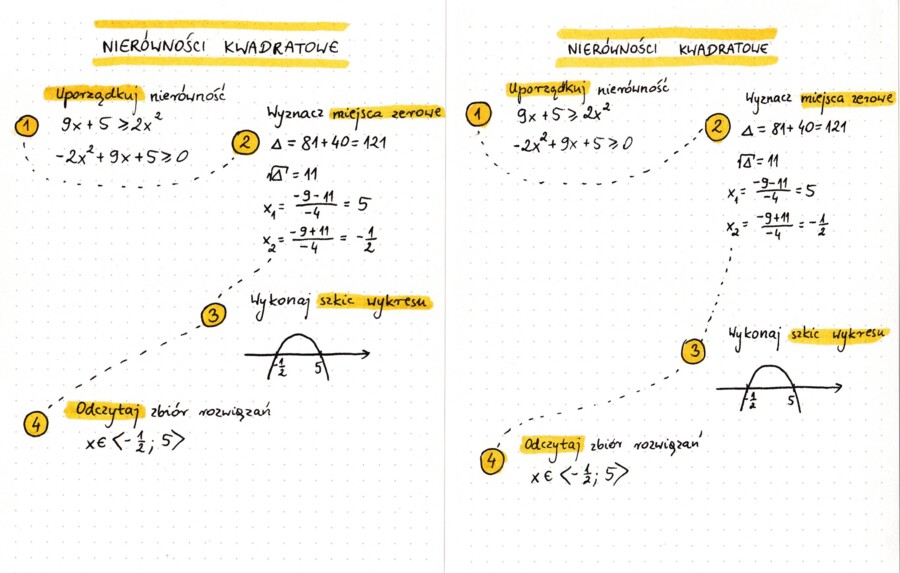 NIERÓWNOŚCI KWADRATOWE
1
Uporządkuj nierówność
9x + 5 ⩾ 2x²
-2x² + 9x + 5 ⩾ 0
2
Wyznacz miejsca zerowe
Δ = 81 + 40 = 121
√Δ = 11
x₁ = (-9-11)/(-4) = 5
x₂ = (-9+11)/(-4) = -1/2
3
Wykonaj szkic wykresu
-1/2 5
4
Odczytaj zbiór rozwiązań
x ∈ <-1/2; 5>
NIERÓWNOŚCI KWADRATOWE
1
Uporządkuj nierówność
9x + 5 ⩾ 2x²
-2x² + 9x + 5 ⩾ 0
2
Wyznacz miejsca zerowe
Δ = 81 + 40 = 121
√Δ = 11
x₁ = (-9-11)/(-4) = 5
x₂ = (-9+11)/(-4) = -1/2
3
Wykonaj szkic wykresu
-1/2 5
4
Odczytaj zbiór rozwiązań
x ∈ <-1/2; 5>